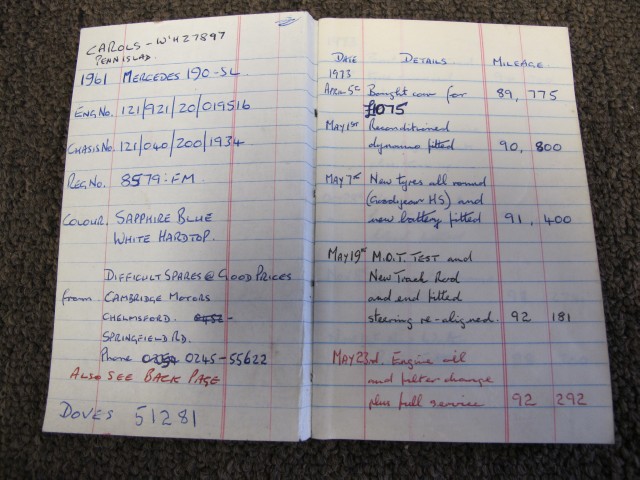 CAROLS - W'H 27897
PENNISLAD.
1961 MERCEDES 190-SL.
ENG NO. 121/921/20/019516
CHASIS NO. 121/040/200/1934
REG NO. 8579:FM
COLOUR. SAPPHIRE BLUE
WHITE HARDTOP.
DIFFICULT SPARES @ GOOD PRICES
from CAMBRIDGE MOTORS
CHELMSFORD. -
SPRINGFIELD RD.
Phone 0245-55622
ALSO SEE BACK PAGE
DOVES 51281
DATE DETAILS MILEAGE
1973
APRIL 5th Bought car for 89,775
£1075
MAY 1st Reconditioned
dynamo fitted 90,800
MAY 7th New tyres all round
(Goodyear HS) and
new battery fitted 91,400
MAY 19th M.O.T. TEST and
New Track Rod
and end fitted
steering re-aligned. 92 181
MAY 23rd. Engine oil
and filter change
plus full service 92 292